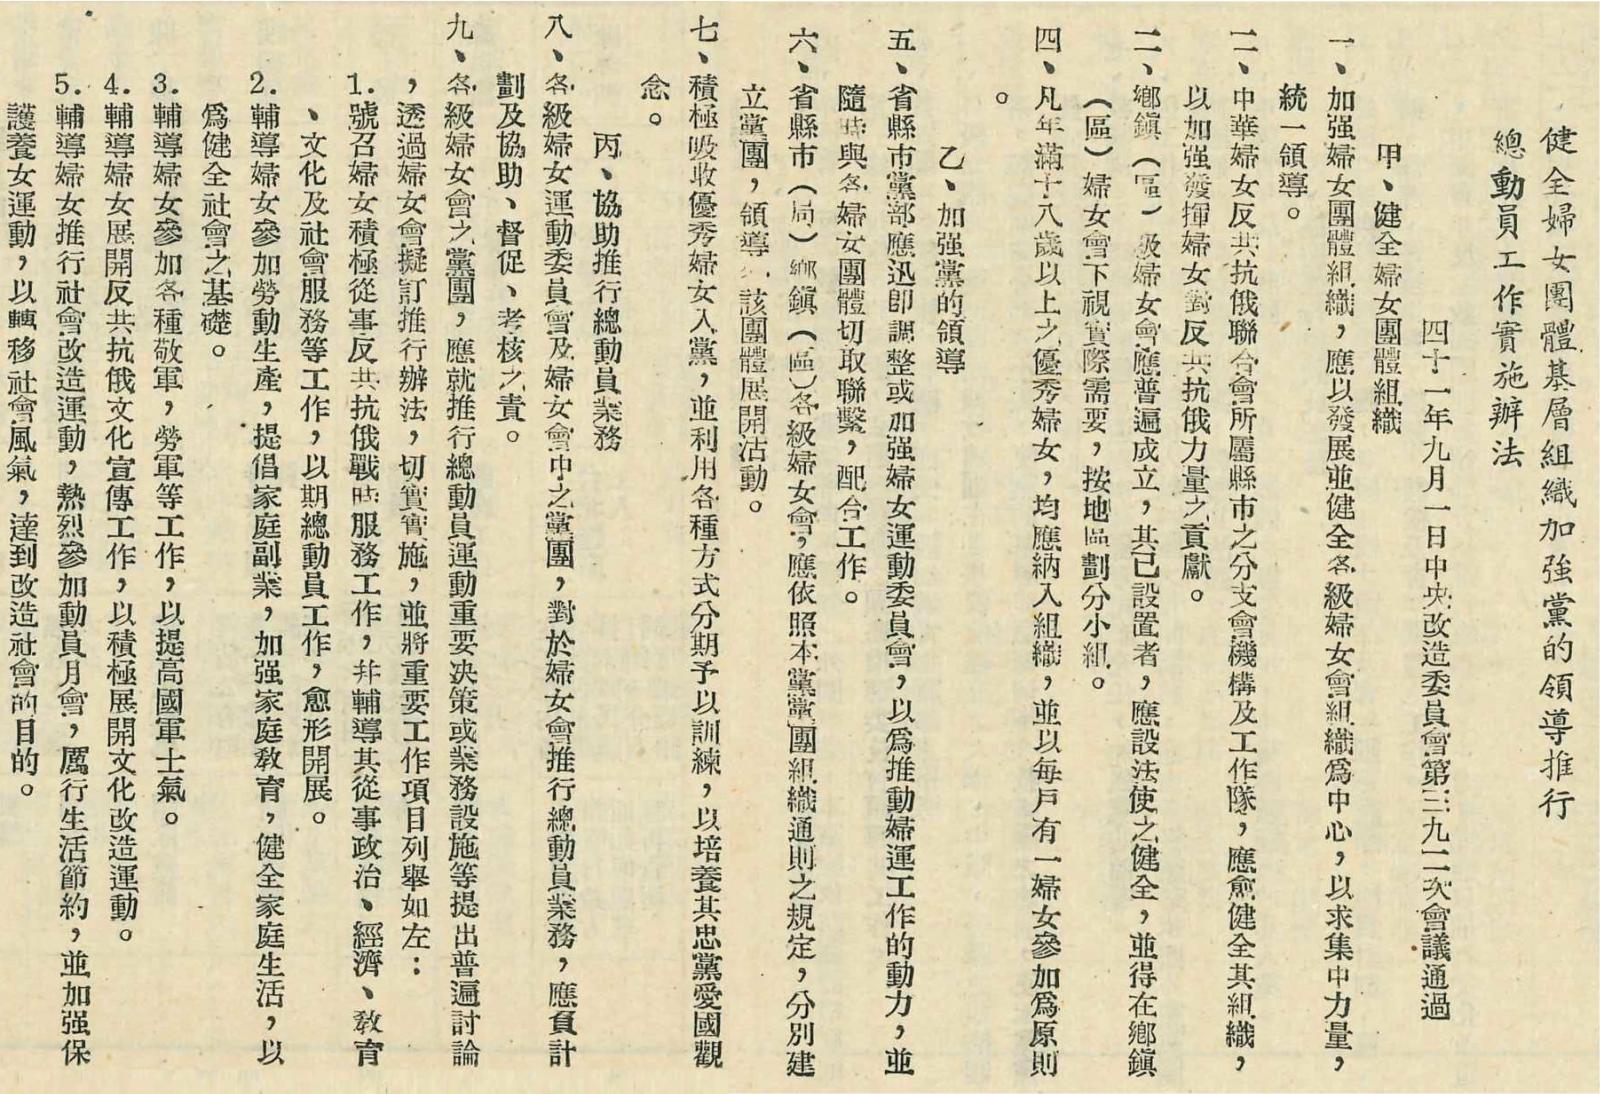 健全婦女團體基層組織加強黨的領導推行
總動員工作實施辦法
四十一年九月一日中央改造委員會第三九二次會議通過
甲、健全婦女團體組織
一、加强婦女團體組織，應以發展並健全各級婦女會組織爲中心，以求集中力量，
統一領導。
二、中華婦女反共抗俄聯合會所屬縣市之分支會機構及工作隊，應愈健全其組織，
以加强發揮婦女對反共抗俄力量之貢獻。
三、鄉鎮（區）級婦女會應普遍成立，其已設置者，應設法使之健全，並得在鄉鎮
（區）婦女會下視實際需要，按地區劃分小組。
四、凡年滿十八歲以上之優秀婦女，均應納入組織，並以每戶有一婦女參加爲原則
。
乙、加强黨的領導
五、省縣市黨部應迅卽調整或加强婦女運動委員會，以爲推動婦運工作的動力，並
隨時與各婦女團體切取聯繫，配合工作。
六、省縣市（局）鄉鎮（區）各級婦女會，應依照本黨黨團組織通則之規定，分別建
立黨團，領導該團體展開活動。
七、積極吸收優秀婦女入黨，並利用各種方式分期予以訓練，以培養其忠黨愛國觀
念。
丙、協助推行總動員業務
八、各級婦女運動委員會及婦女會中之黨團，對於婦女會推行總動員業務，應負計
劃及協助、督促、考核之責。
九、各級婦女會之黨團，應就推行總動員運動重要決策或業務設施等提出普遍討論
，透過婦女會擬訂推行辦法，切實實施，並將重要工作項目列舉如左：
1.號召婦女積極從事反共抗俄戰時服務工作，幷輔導其從事政治、經濟、敎育
、文化及社會服務等工作，以期總動員工作，愈形開展。
2.輔導婦女參加勞動生產，提倡家庭副業，加强家庭敎育，健全家庭生活，以
爲健全社會之基礎。
3.輔導婦女參加各種敬軍，勞軍等工作，以提高國軍士氣。
4.輔導婦女展開反共抗俄文化宣傳工作，以積極展開文化改造運動。
5.輔導婦女推行社會改造運動，熱烈參加動員月會，厲行生活節約，並加强保
護養女運動，以轉移社會風氣，達到改造社會的目的。